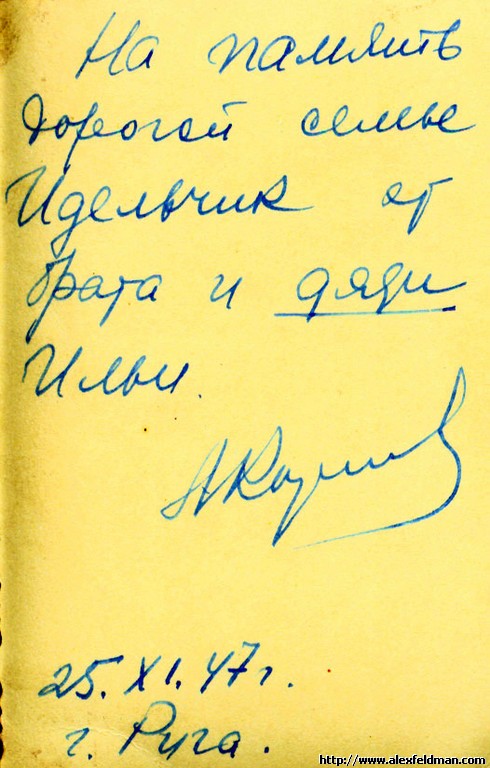 На память
дорогой семье
Идельчик от
брата и дяди
Ильи.
25. XI. 47 г.
г. Рига.
http://www.alexfeldman.com